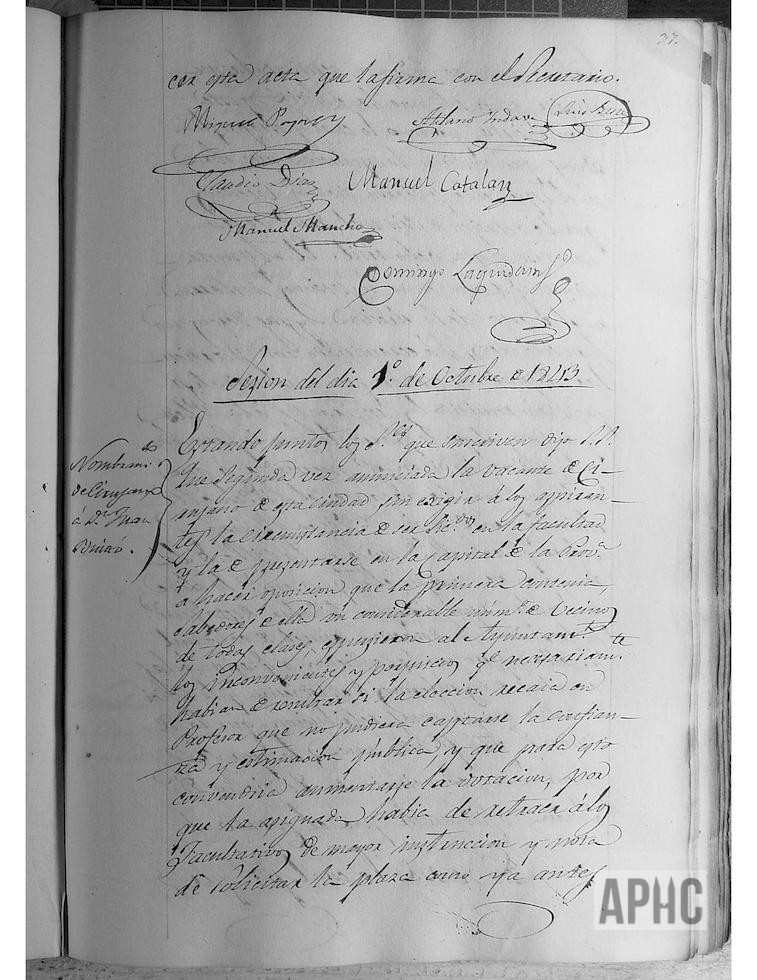 37.
cer esta acta que la firma con el Secretario.
Manuel Catalan
Claudio Diaz
Manuel Mancho
Domingo
Sesion del dia 1.º de Octubre de 1843
Nombram.to
de Cirujano
á D.n Juan
Estando juntos los S.res que suscriven dijo S.S.
Que segunda vez anunciada la vacante de Ci-
rujano de esta ciudad sin exigir á los aspiran-
tes la circunstancia de ser en la facultad
y la de presentarse en la Capital de la Prov.a
a hacer oposicion que la primera contenia,
sabedores de ello un considerable núm.o de Vecinos
de todas clases espusieron al Ayuntam.to
los inconvenientes y perjuicios q.e necesariam.te
habian de resultar si la eleccion recaia en
Profesor que no pudiera captarse la confian-
za y estimacion publica y que para esto
convendria aumentarse la dotacion, por
que la asignada habia de retraer á los
Facultativos de mayor instruccion y nota
de solicitar la plaza como ya antes
APHC